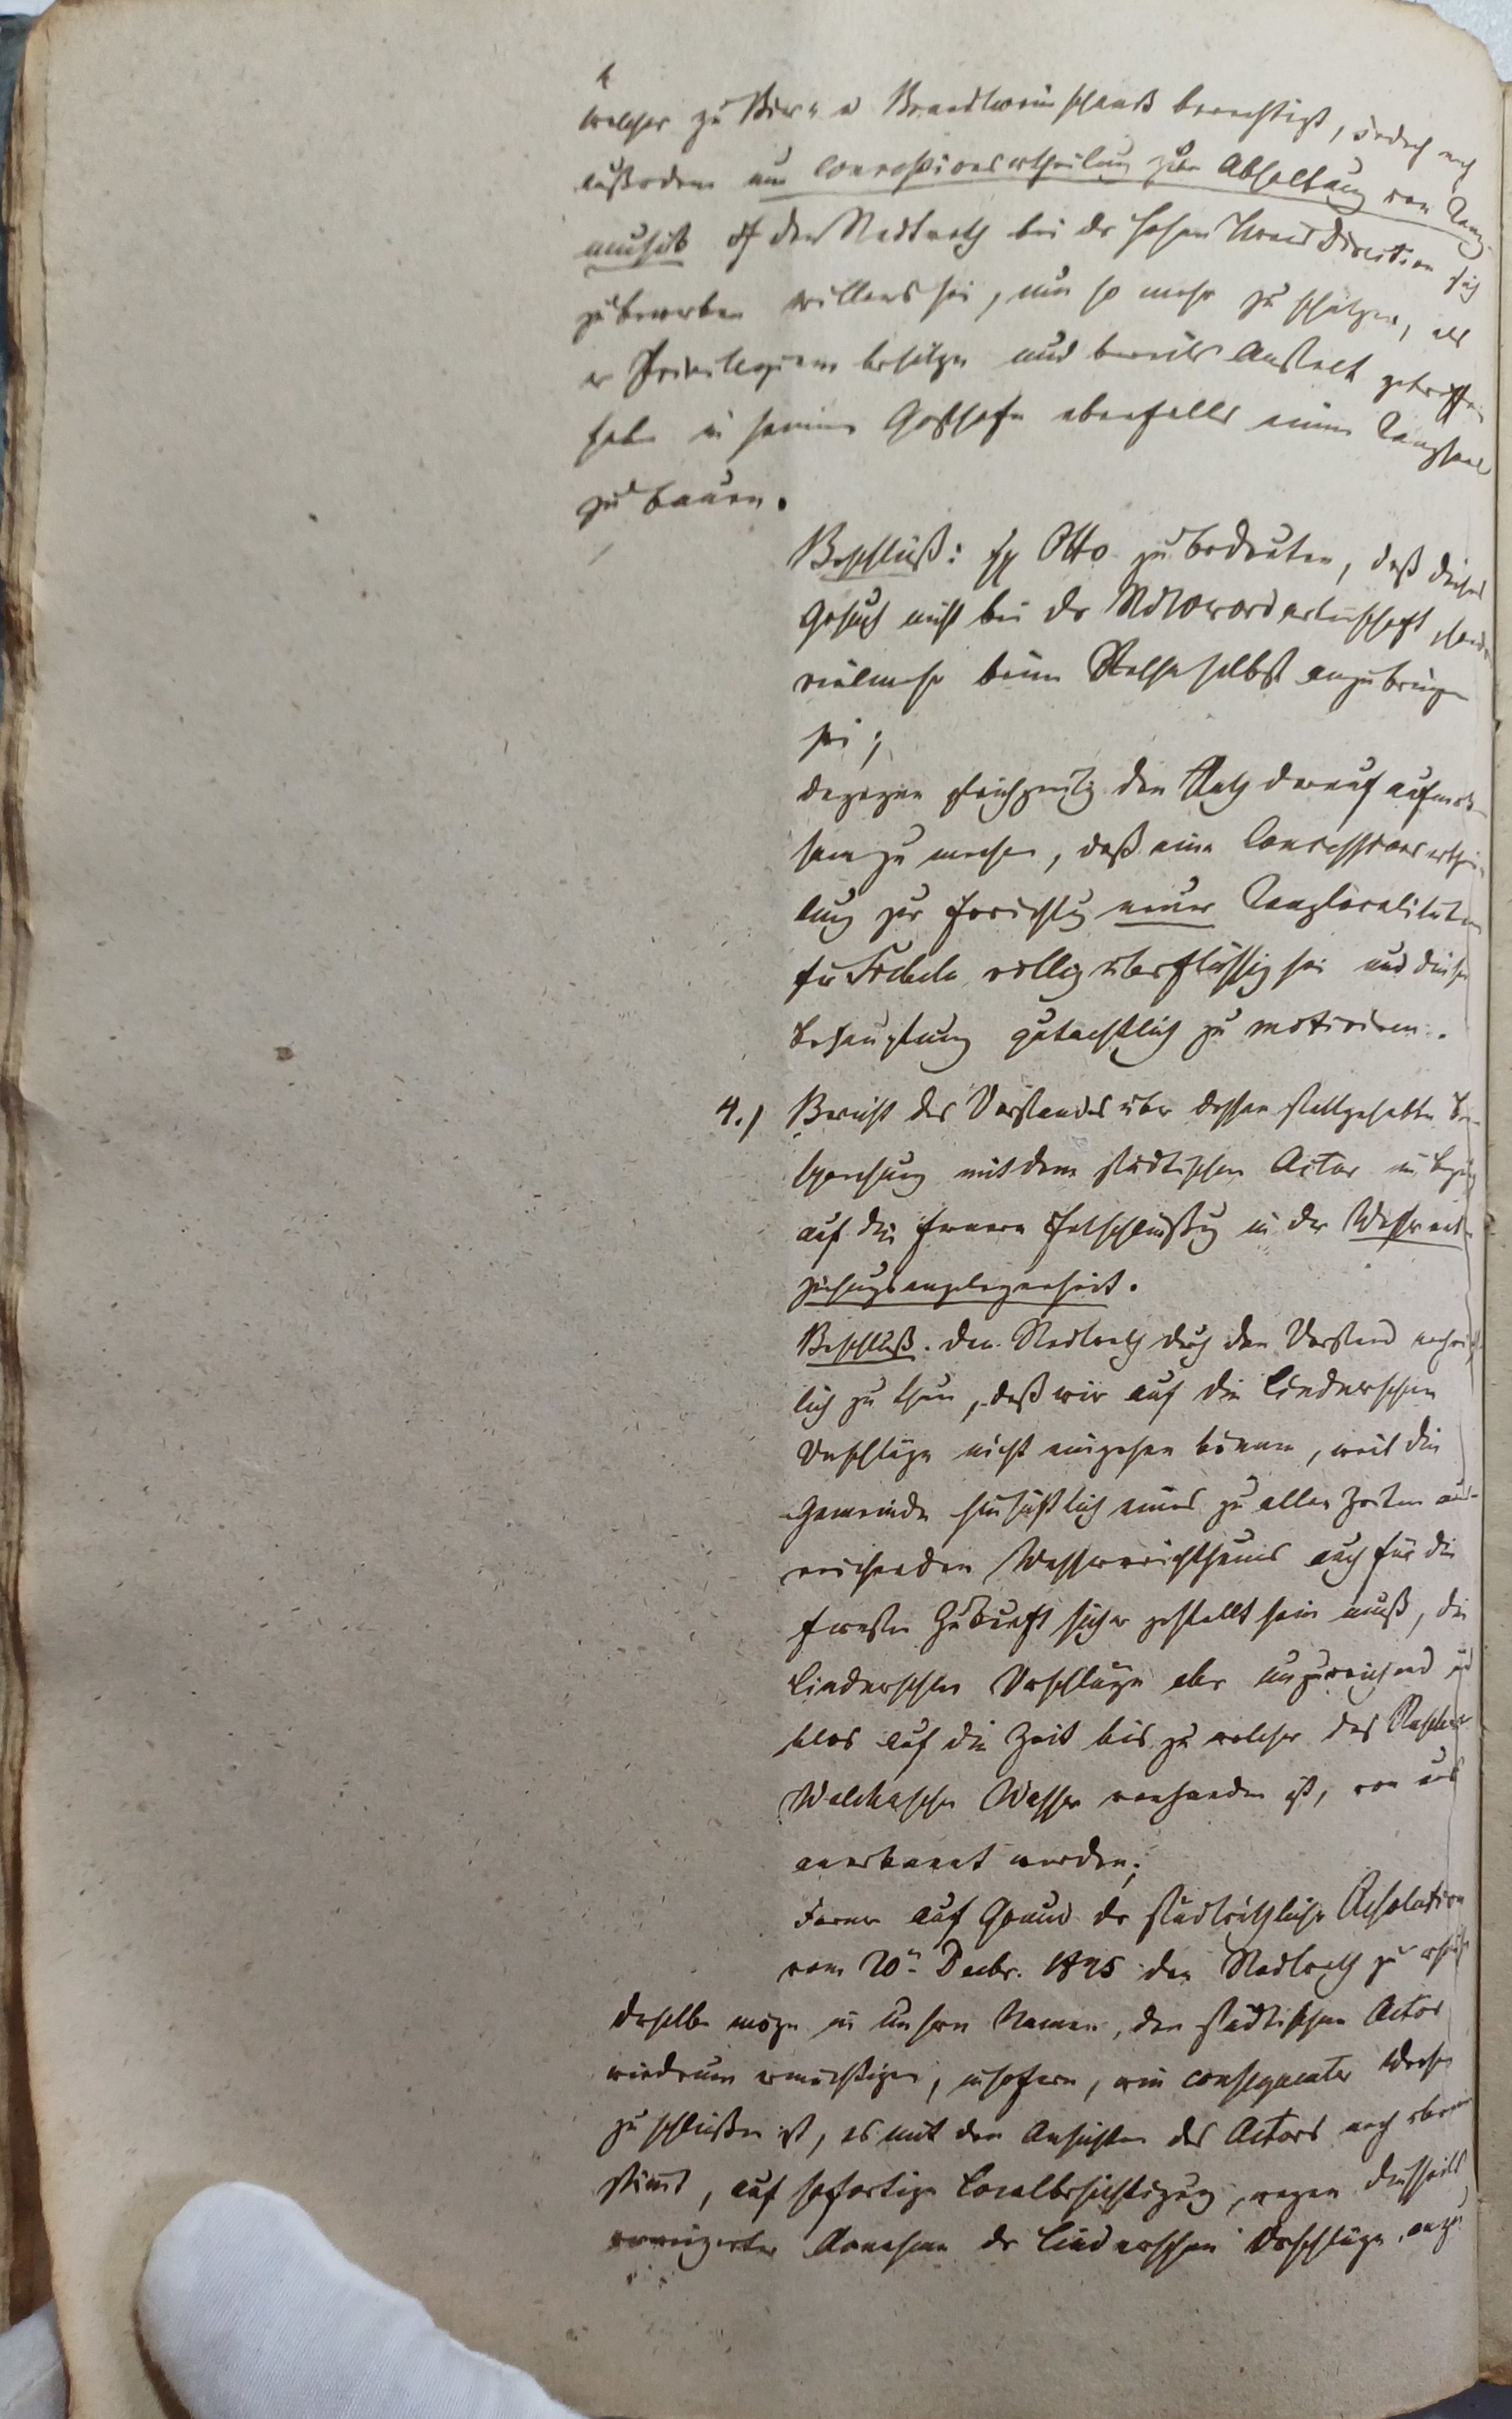 welcher zu Bier- u Brandtweinschank berechtigt, jedoch auch
außerdem um Concessionsertheilung zur Abhaltung von Tanz
musik der Stadtrath bei der hohen Kreis Direction sich
zu bewerben willens sei, um so mehr zu schützen, als
er Privilegium besitze und bereits Anstalt getroffen
habe in seinem Gasthofe ebenfalls einen Tanzsaal
zu bauen.
Beschluß: H Otto zu bedeuten, daß dieses
Gesuch nicht bei der Stdtverordnetenschaft, 
vielmehr beim Rathe selbst anzubringen
sei;
dagegen gleichzeitig den Rath darauf aufmerk-
sam zu machen, daß eine Concessionserthei-
lung zur Errichtg neuer Tanzlocalitäten
für völlig überflüssig sei und diese
Behauptung gutachtlich zu motiviren.
4.) Bericht des Vorstandes über dessen stattgehabte Be-
sprechung mit dem städtischen Actor in Bezug
auf die fernere Entschließg in der Wasserent-
ziehungsangelegenheit.
Beschluß. Den Stadtrath durch den Vorstand 
lich zu thun, daß wir auf die Linderschen
Vorschläge nicht eingehen können, weil die
Gemeinde hinsichtlich eines zu allen Zeiten aus-
reichenden Wasserreichthums auch für die
fernste Zukunft sicher gestellt sein muß, die
Linderschen Vorschläge aber unzureichend und
blos auf die Zeit bis zu welcher das 
Wasser vorhanden ist, von uns
anerkannt werden;
Ferner auf Grund der stadträthlichen Resolution
vom 20n Decbr. 1845 den Stadtrath zu 
derselbe möge in unserm Namen, den städtischen Actor
wiederum ermächtigen, insofern, wie consequenter Weise
zu schließen ist, es mit den Ansichten des Actors noch überein
stimmt, auf sofortige Localbesichtigung, wegen diesseits
verweigerter Annahme der Linderschen Vorschläge, anzu